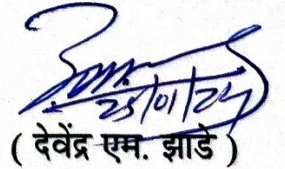 25/01/24
( देवेंद्र एम. झाडे )